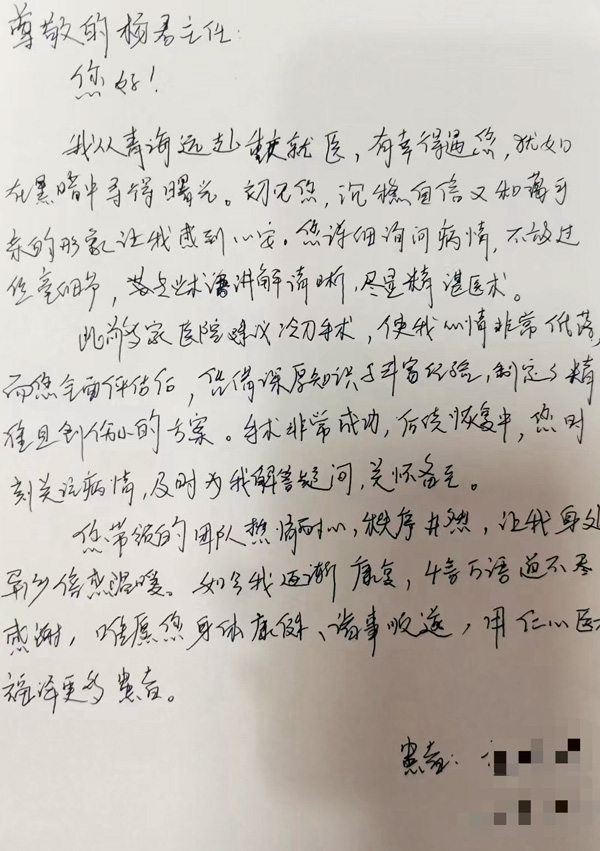 尊敬的杨君主任:
您好!
我从青海远赴重庆就医,有幸得遇您,犹如
在黑暗中寻得曙光。初见您,沉稳自信又和蔼可
亲的形象让我感到心安。您详细询问病情,不放过
任毫细节,术语讲解清晰,尽显精湛医术。
此前家医院建议冷刀手术,使我心情非常低落,
而您全面评估后,凭借深厚知识与丰富经验,制定了精
准且创伤小的方案。手术非常成功,后续恢复中,您时
刻关注病情,及时为我解答疑问,关怀备至。
您带领的团队热情耐心,秩序井然,让我身处
异乡倍感温暖。如今我逐渐康复,千言万语道不尽
感谢,唯愿您身体康健、诸事顺遂,用仁心医
福泽更多患者。
患者: